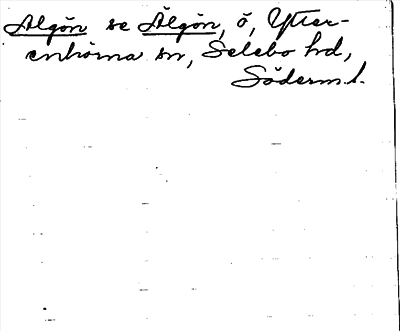 Algön se Älgön, ö, Ytter-
enhörna sn, Selebo hd,
Söderm.l.